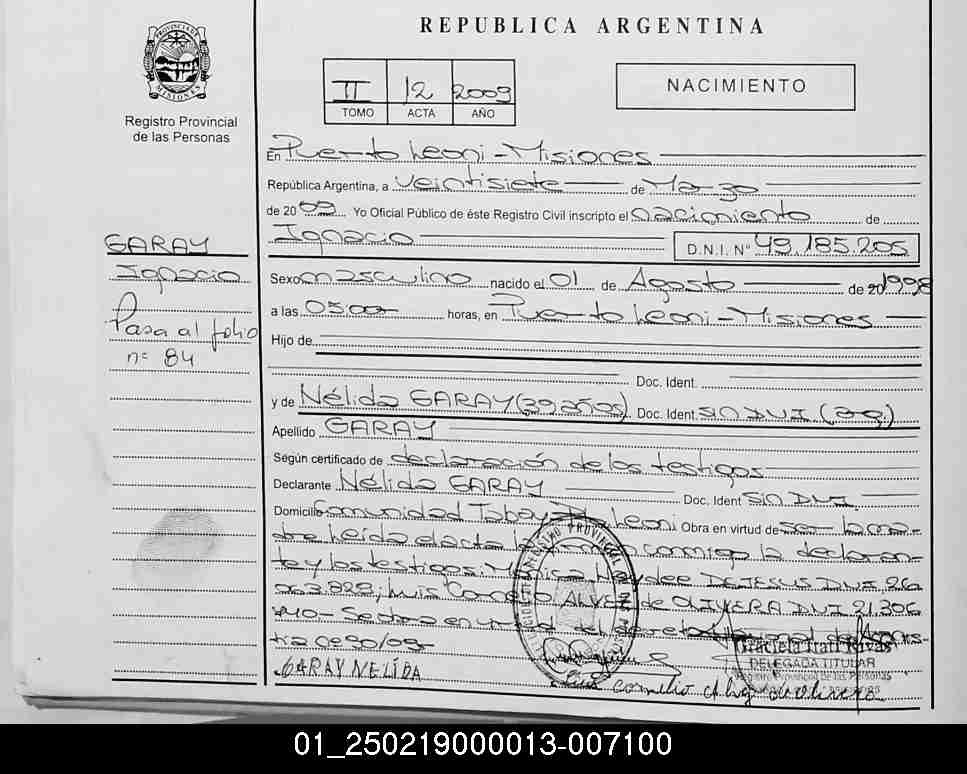 REPUBLICA ARGENTINA
PROVINCIA DE
MISIONES
Registro Provincial
de las Personas
II 12 2009
TOMO ACTA AÑO
NACIMIENTO
En Puerto Leoni - Misiones
República Argentina, a veintisiete de Marzo
de 2009 Yo Oficial Público de éste Registro Civil inscripto el nacimiento de
Ignacio D.N.I. N° 49.185.205
GARAY
Ignacio
Pasa al folio
n= 84
Sexo masculino nacido el 01 de Agosto de 20 1998
a las 05:00 horas, en Puerto Leoni - Misiones
Hijo de
Doc. Ident.
y de Nélida GARAY (39 años) Doc. Ident. SIN DNI (arg.)
Apellido GARAY
Según certificado de declaración de los testigos
Declarante Nélida GARAY Doc. Ident SIN DNI
Domicilio Comunidad Tabay Leoni Obra en virtud de ser la ma-
dre Leída el acta la conmigo la declaran-
te y los testigos: Mónica Haydee DE JESUS DNI 26
063.828; Luis Cornelio ALVEZ de OLIVERA DNI 21.306
- Se labra en
tra 0090/09-
GARAY NELIDA
Graciela Itatí Rivas
DELEGADA TITULAR
Registro Provincial de las Personas
Luis Cornelio
01_250219000013-007100